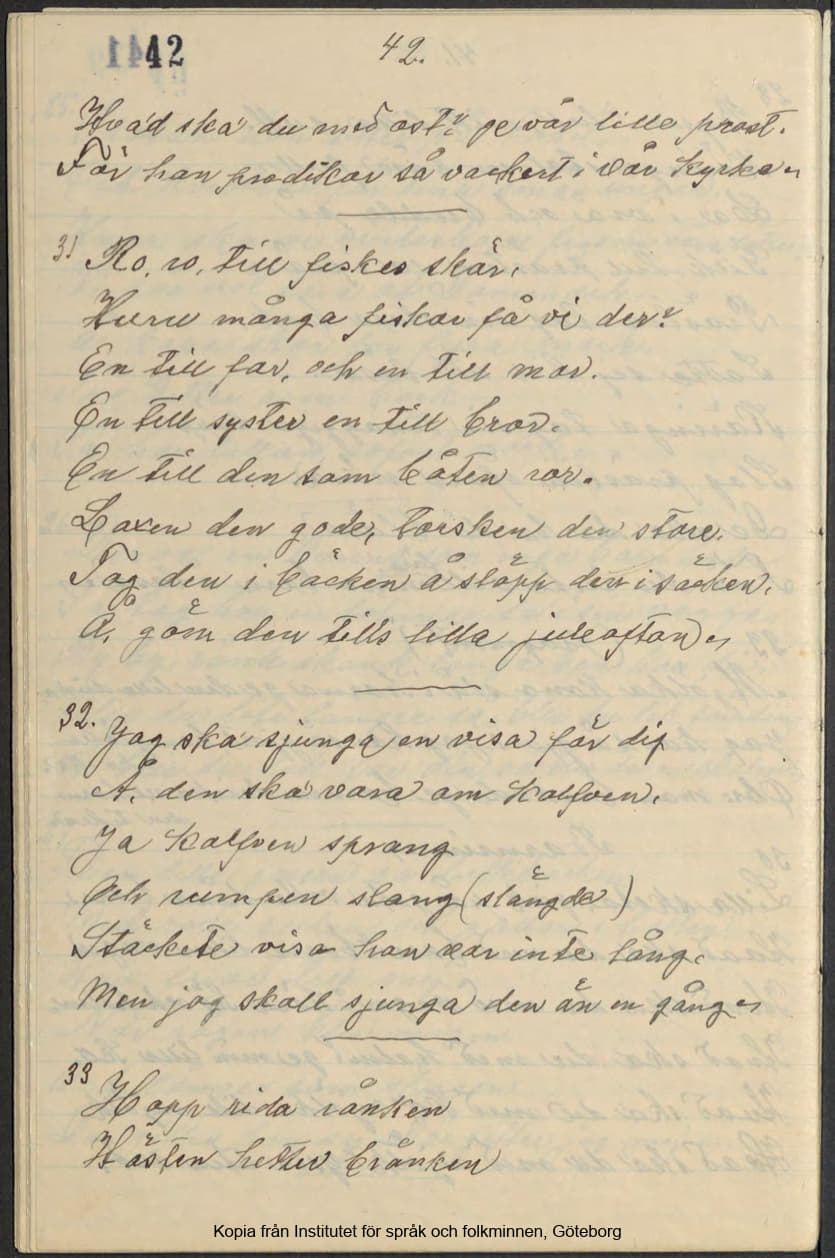 1142
42.
Hvad ska' du med ost? ge vår lille prost.
För han predikar så vackert i vår kyrka.
31 Ro, ro, till fiskes skär,
Huru många fiskar få vi der?
En till far, och en till mor.
En till syster en till bror.
En till den som båten ror.
Laxen den gode, torsken den store.
Tag den i bäcken å släpp den i säcken,
Å, göm den tills lilla juleaftan.
32. Jag ska' sjunga en visa för dig
Å, den ska' vara om kalfven,
Ja kalfven sprang
Och rumpen slang (slängde)
Stäckete visa han var inte lång,
Men jag skall sjunga den än en gång.
33 Hopp rida rånken
Hästen hetter brånken
Kopia från Institutet för språk och folkminnen, Göteborg